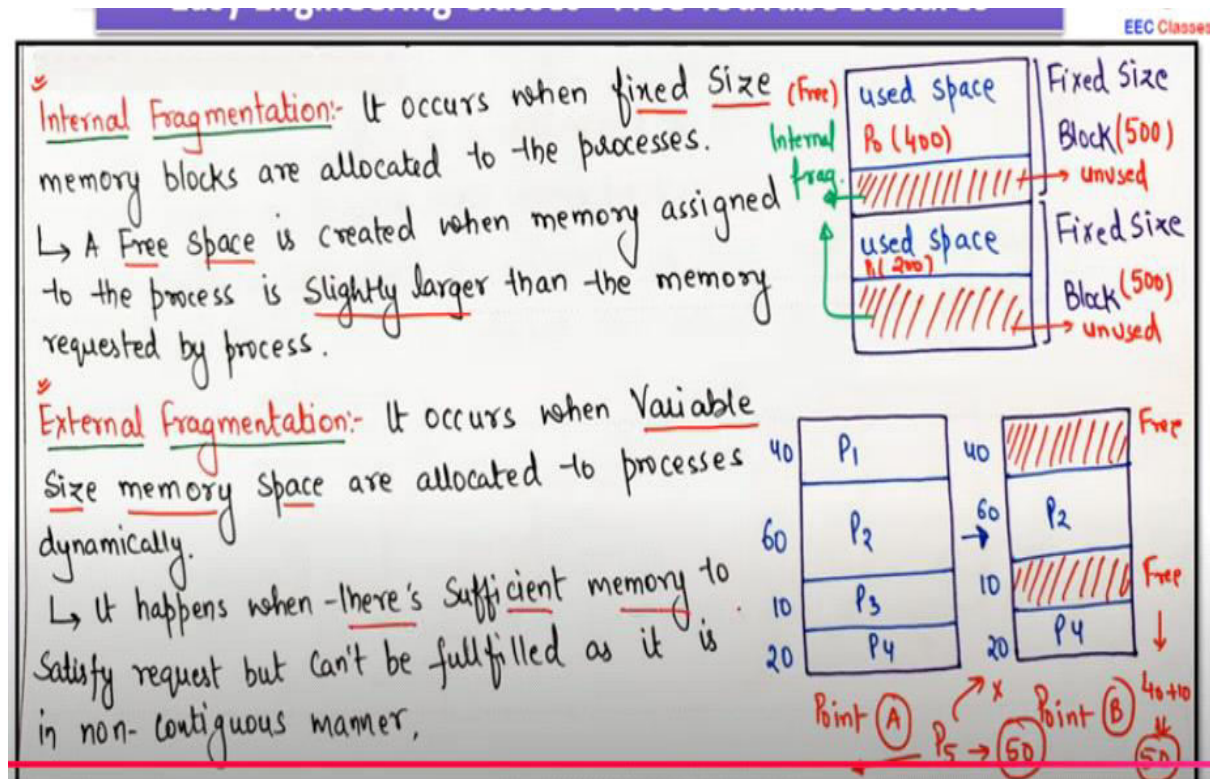 Easy Engineering Classes - Free YouTube Lectures
EEC Classes
Internal Fragmentation:- It occurs when fixed Size
memory blocks are allocated to the processes.
↳ A Free Space is created when memory assigned
to the process is slightly larger than the memory
requested by process.
(Free)
Internal
frag.
used space
P0 (400)
Fixed Size
Block (500)
→ unused
used space
P1 (200)
Fixed Size
Block (500)
→ unused
External Fragmentation:- It occurs when Variable
Size memory Space are allocated to processes
dynamically.
↳ It happens when there's Sufficient memory to
Satisfy request but Can't be fullfilled as it is
in non-contiguous manner.
40 P1
60 P2
10 P3
20 P4
Point A
→
40 Free
60 P2
10 Free
20 P4
Point B
P5 → 50
x
40+10
50